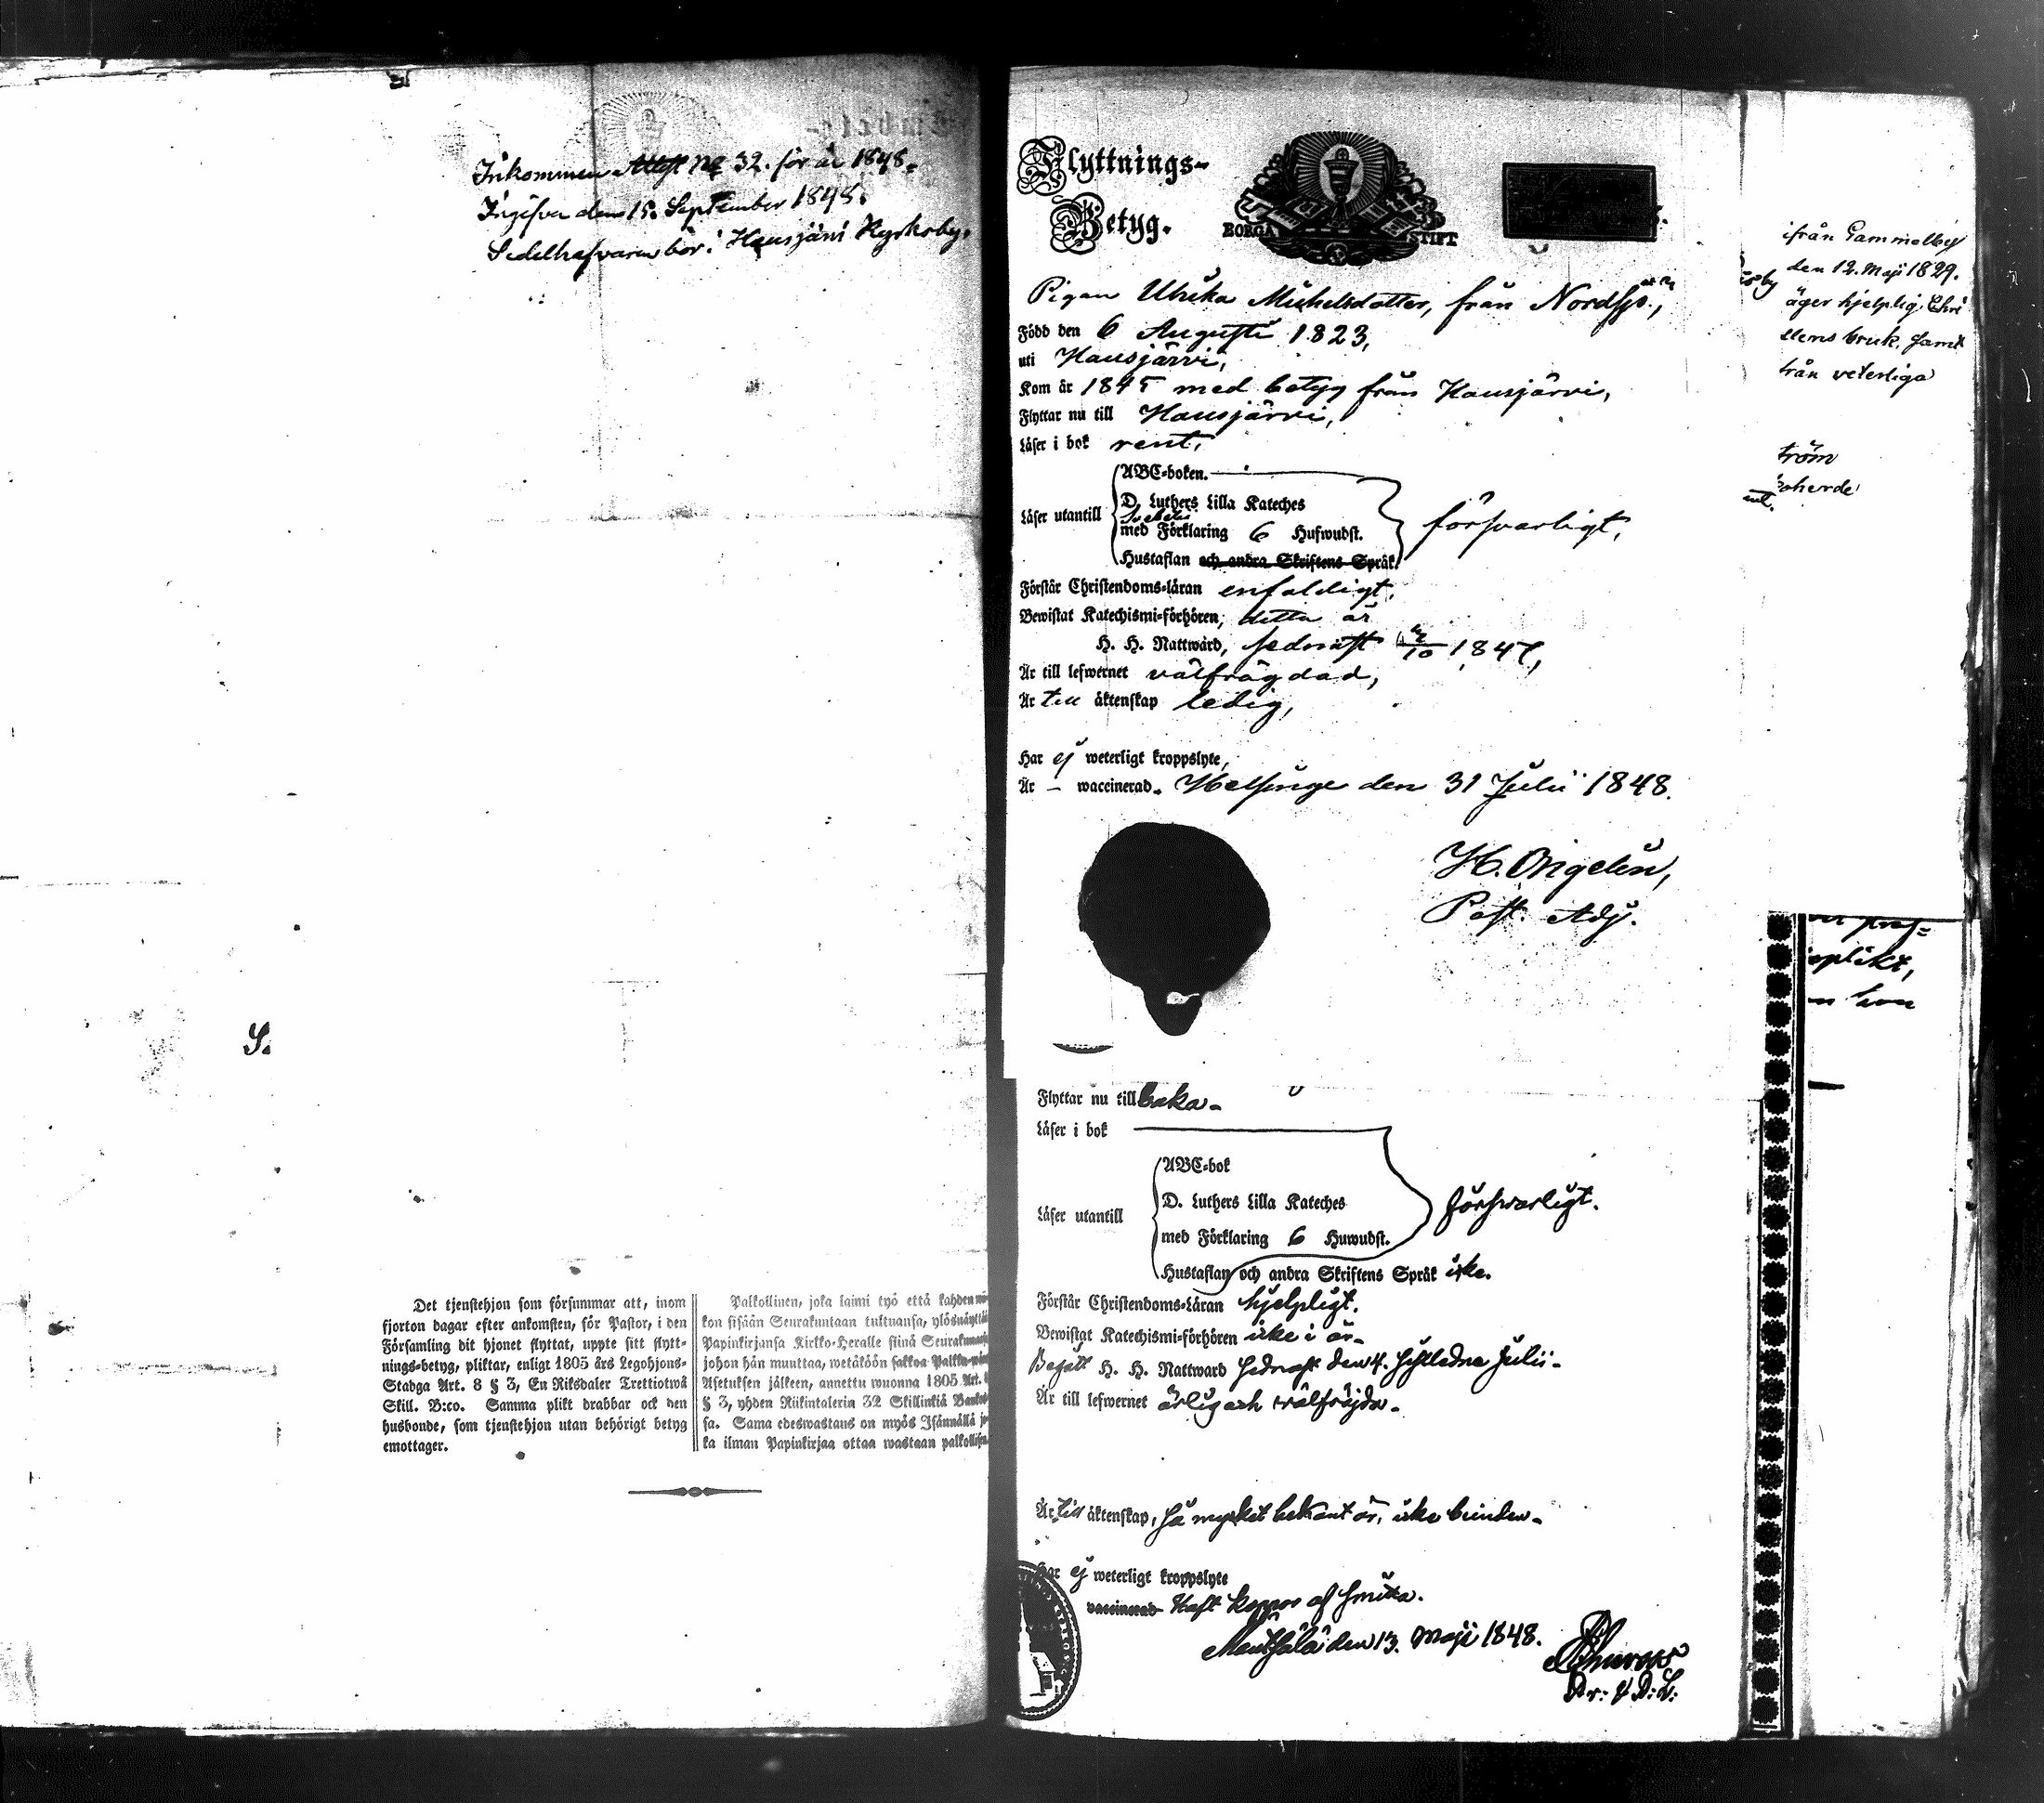 Inkommen Attest No 32. för år 1848.
Ingifven den 15. September 1848.
Sedelhafvaren bor i Hausjärvi Kyrkoby.
S.
Det tjenstehjon som försummar att, inom
fjorton dagar efter ankomsten, för Pastor, i den
Församling dit hjonet flyttat, uppte sitt flytt-
nings-betyg, pliktar, enligt 1805 års Legohjons-
Stadga Art. 8 § 3, En Riksdaler Trettiotwå
Skill. B:co. Samma plikt drabbar ock den
husbonde, som tjenstehjon utan behörigt betyg
emottager.
Palkollinen, joka laimi lyö että kahden wii-
kon sisään Seurakuntaan tultuansa, ylösnäyttä
Papinkirjansa Kirkko-Heralle siinä Seurakunnas
johon hän muuttaa, wetäköön sakkoa Palkka-wäe
Asetuksen jälkeen, annettu wuonna 1805 Art. 8
§ 3, yhden Riikintalerin 32 Skillinkiä Banko
sa. Sama edeswastaus on myös Isännällä jo
ka ilman Papinkirjaa ottaa wastaan palkollisen.
Flyttnings-
Betyg.
BORGÅ STIFT
Pigan Ulrika Michelsdotter, från Nordsjö,
Född den 6 Augusti 1823,
uti Hausjärvi,
Kom år 1845 med betyg från Hausjärvi,
Flyttar nu till Hausjärvi,
Läser i bok rent,
ABC-boken.
D. Luthers Lilla Kateches
Läser utantill Svebelii försvarligt,
med Förklaring 6 Hufwudst.
Hustaflan och andra Skriftens Språk
Förstår Christendoms-läran enfaldigt,
Bewistat Katechismi-förhören, detta år
H. H. Nattward, sednast 10 1847,
Är till lefwernet välfrägdad,
Är till äktenskap ledig,
Har ej weterligt kroppslyte,
Är – waccinerad. Helsinge den 31 Julii 1848.
H. Ongelin,
Past. Adj.
Flyttar nu till baka.
Läser i bok
ABC-bok
D. Luthers Lilla Kateches
Läser utantill försvarligt.
med Förklaring 6 Huwudst.
Hustaflan och andra Skriftens Språk icke.
Förstår Christendoms-Läran hjelpligt.
Bewistat Katechismi-förhören icke i år.
Begått H. H. Nattward sednast den 4. sistledne Julii.
Är till lefwernet ärlig och välfräjda.
Är till äktenskap, så mycket bekant är, icke bunden.
Har ej weterligt kroppslyte
vaccinerad Haft koppor af smitta.
Mentsälä den 13. Maji 1848.
ifrån Gammelby
den 12. Maji 1829.
äger hjelplig Chri
stens bruk, samt
från veterliga
tröm
oherde
plikt,